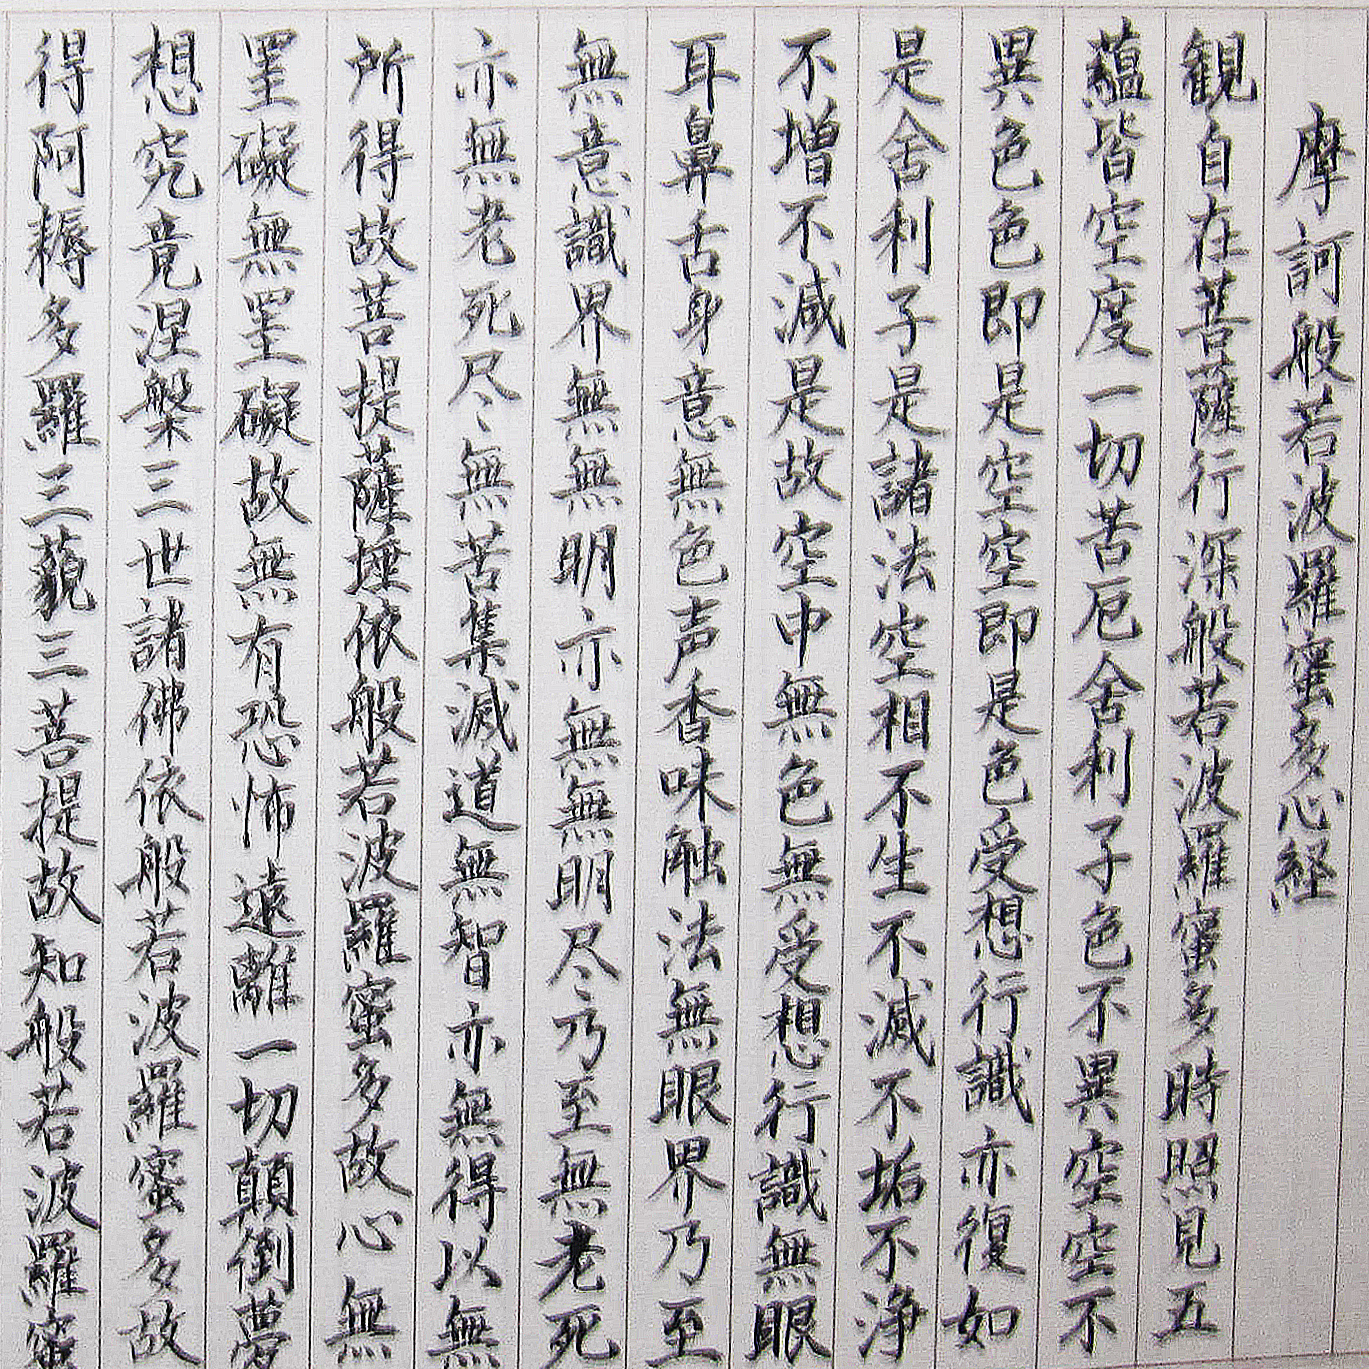 摩訶般若波羅蜜多心経
観自在菩薩行深般若波羅蜜多時照見五
蘊皆空度一切苦厄舍利子色不異空空不
異色色即是空空即是色受想行識亦復如
是舍利子是諸法空相不生不滅不垢不浄
不増不減是故空中無色無受想行識無眼
耳鼻舌身意無色声香味触法無眼界乃至
無意識界無無明亦無無明尽乃至無老死
亦無老死尽無苦集滅道無智亦無得以無
所得故菩提薩埵依般若波羅蜜多故心無
罣礙無罣礙故無有恐怖遠離一切顛倒夢
想究竟涅槃三世諸佛依般若波羅蜜多故
得阿耨多羅三藐三菩提故知般若波羅蜜